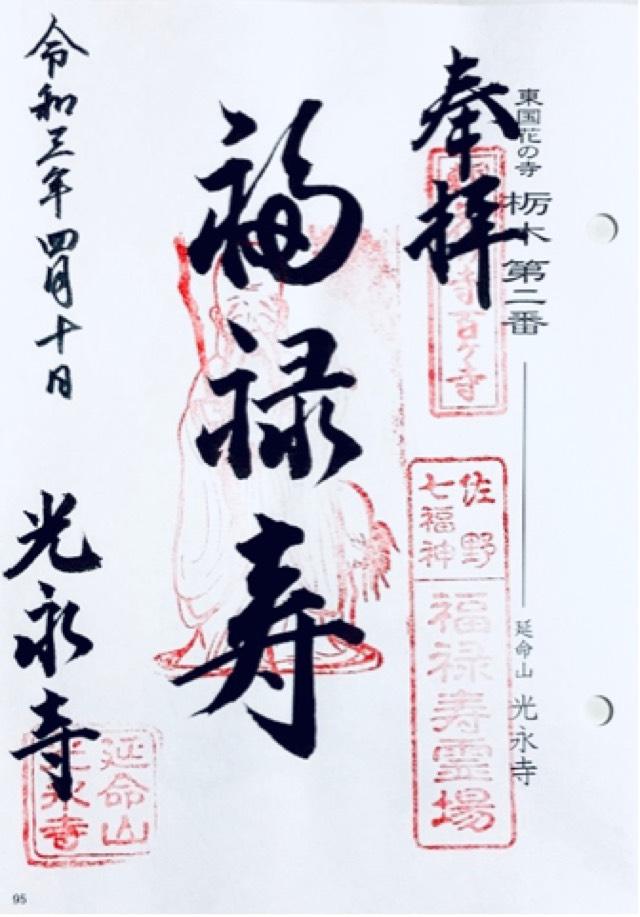 東国花の寺 栃木 第二番
延命山 光永寺
奉拝
寺百ヶ寺
佐野
七福神
福禄寿霊場
福禄寿
令和三年四月十日
光永寺
延命山
光永寺
95